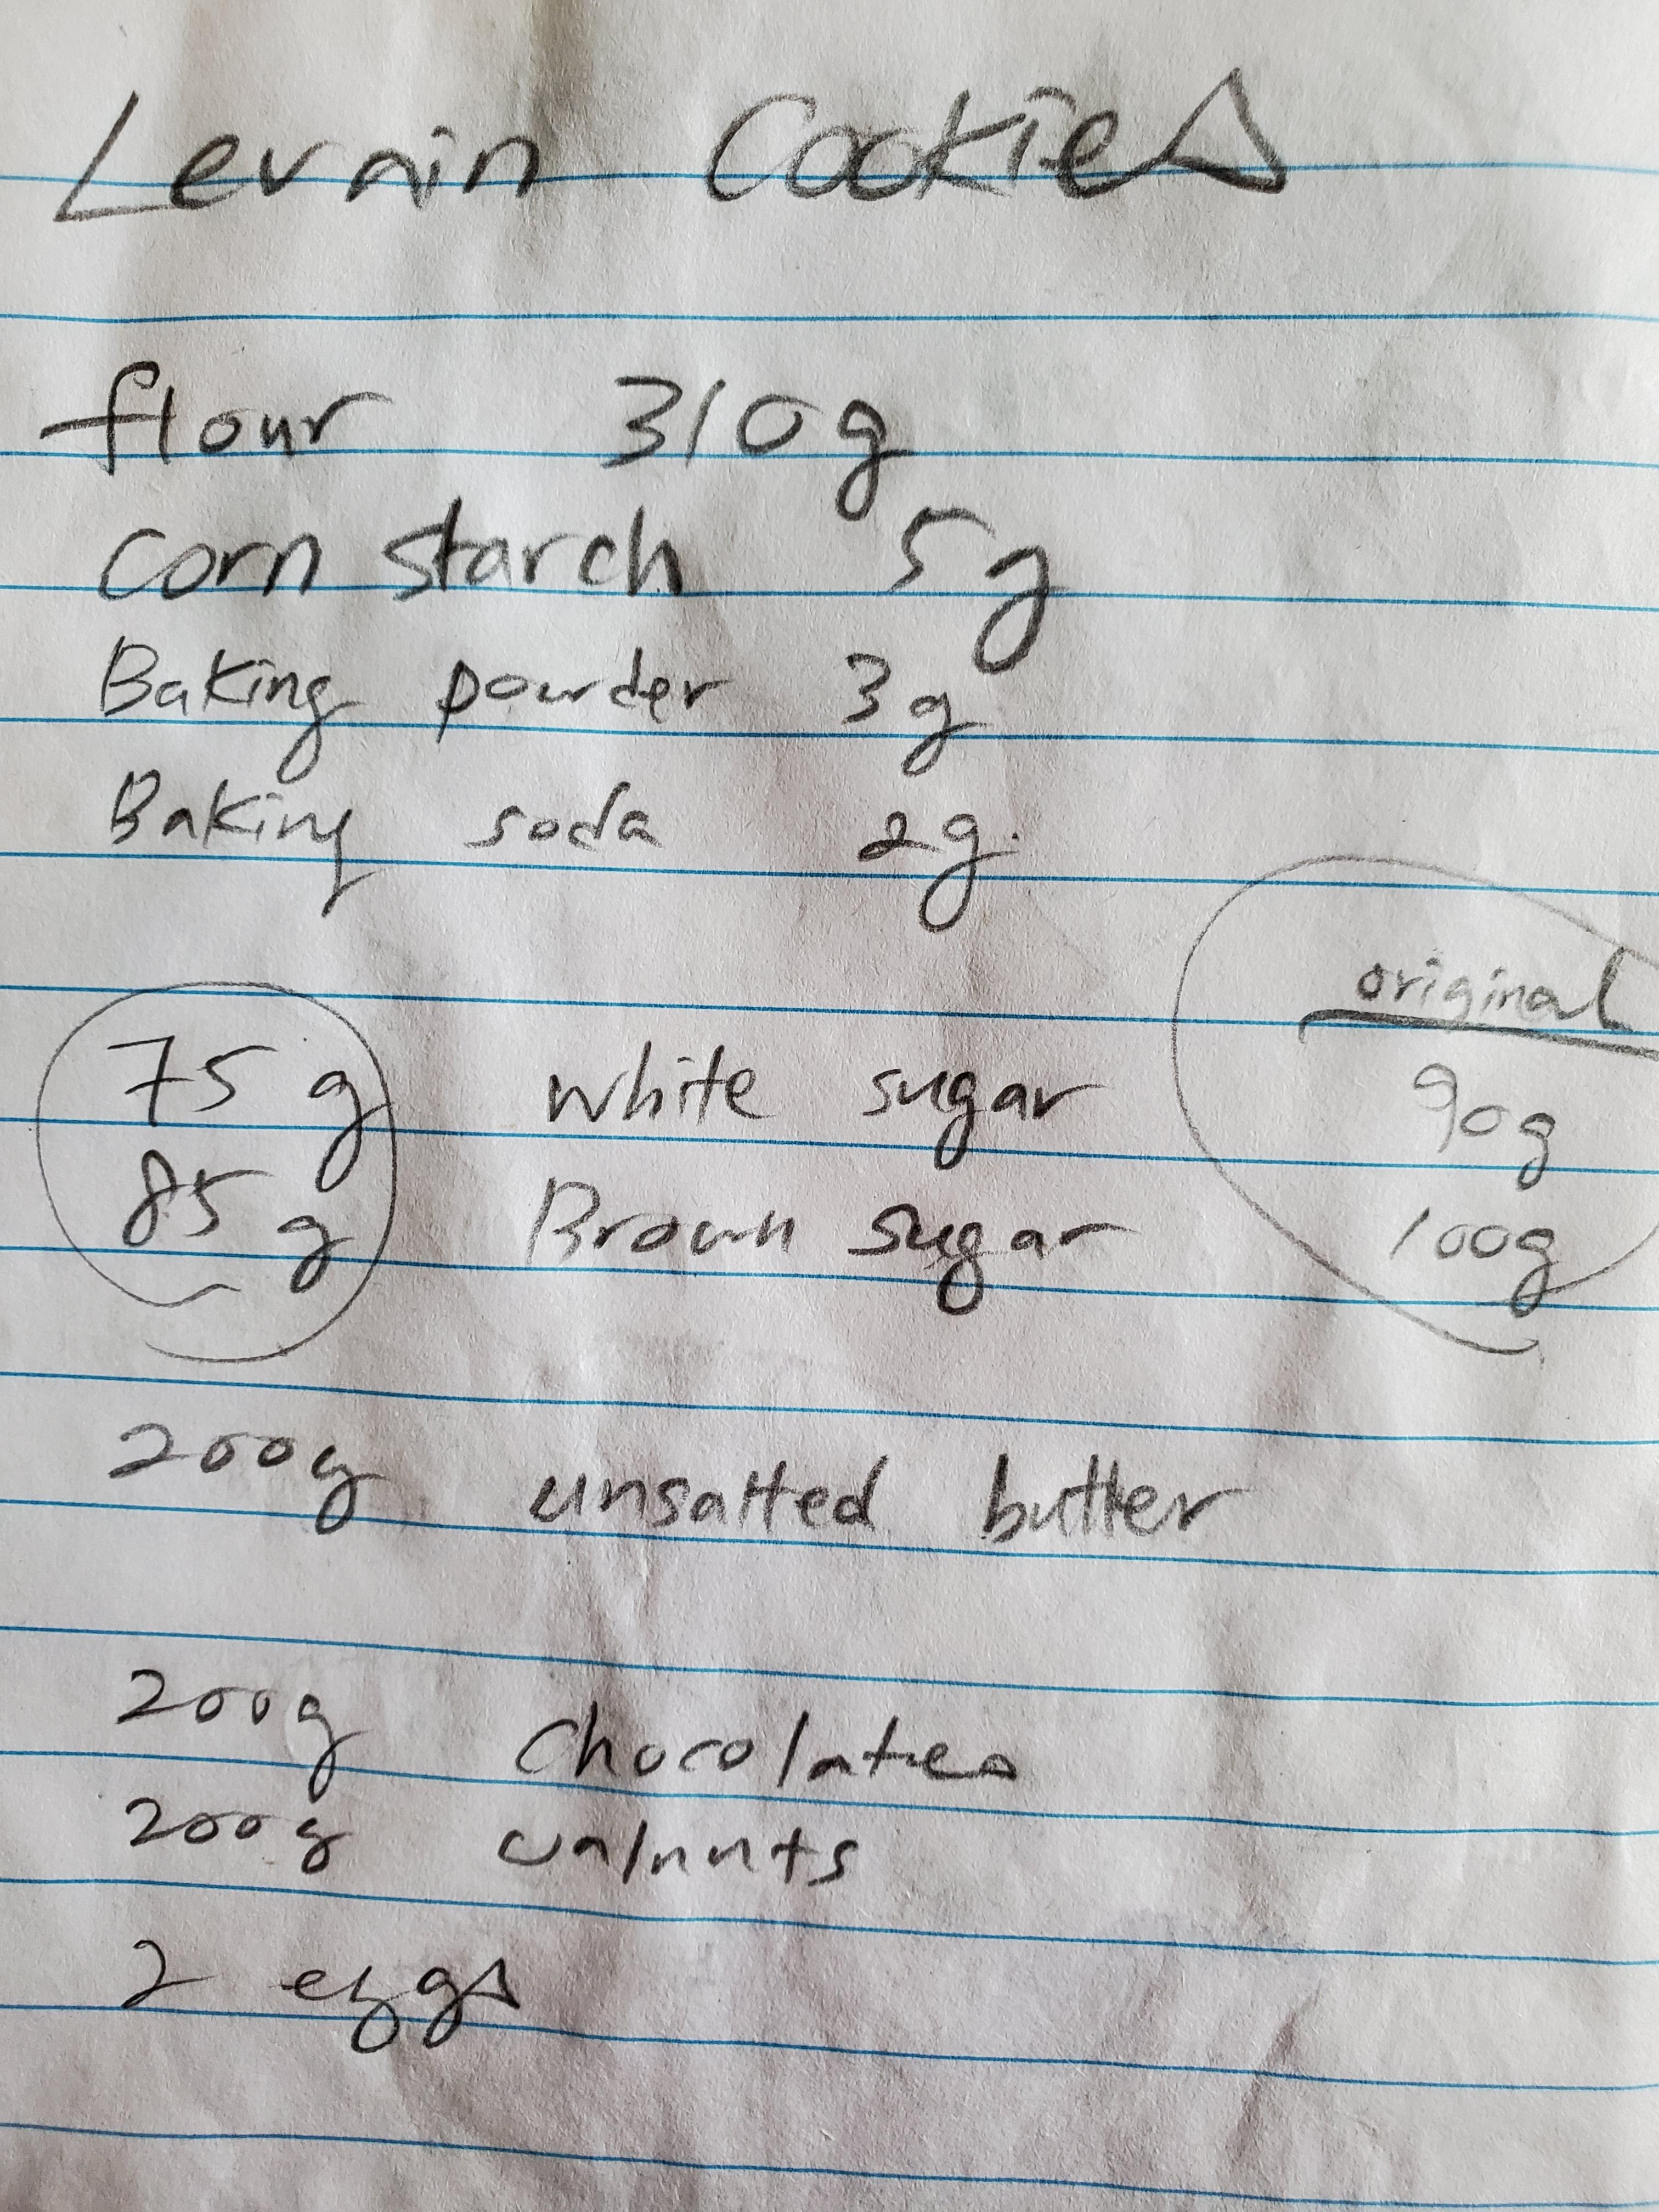 Levain Cookies
flour 310g
corn starch 5g
Baking powder 3g
Baking soda 2g.
original
75 g white sugar 90g
85 g Brown sugar 100g
200g unsalted butter
200g chocolates
200g walnuts
2 eggs